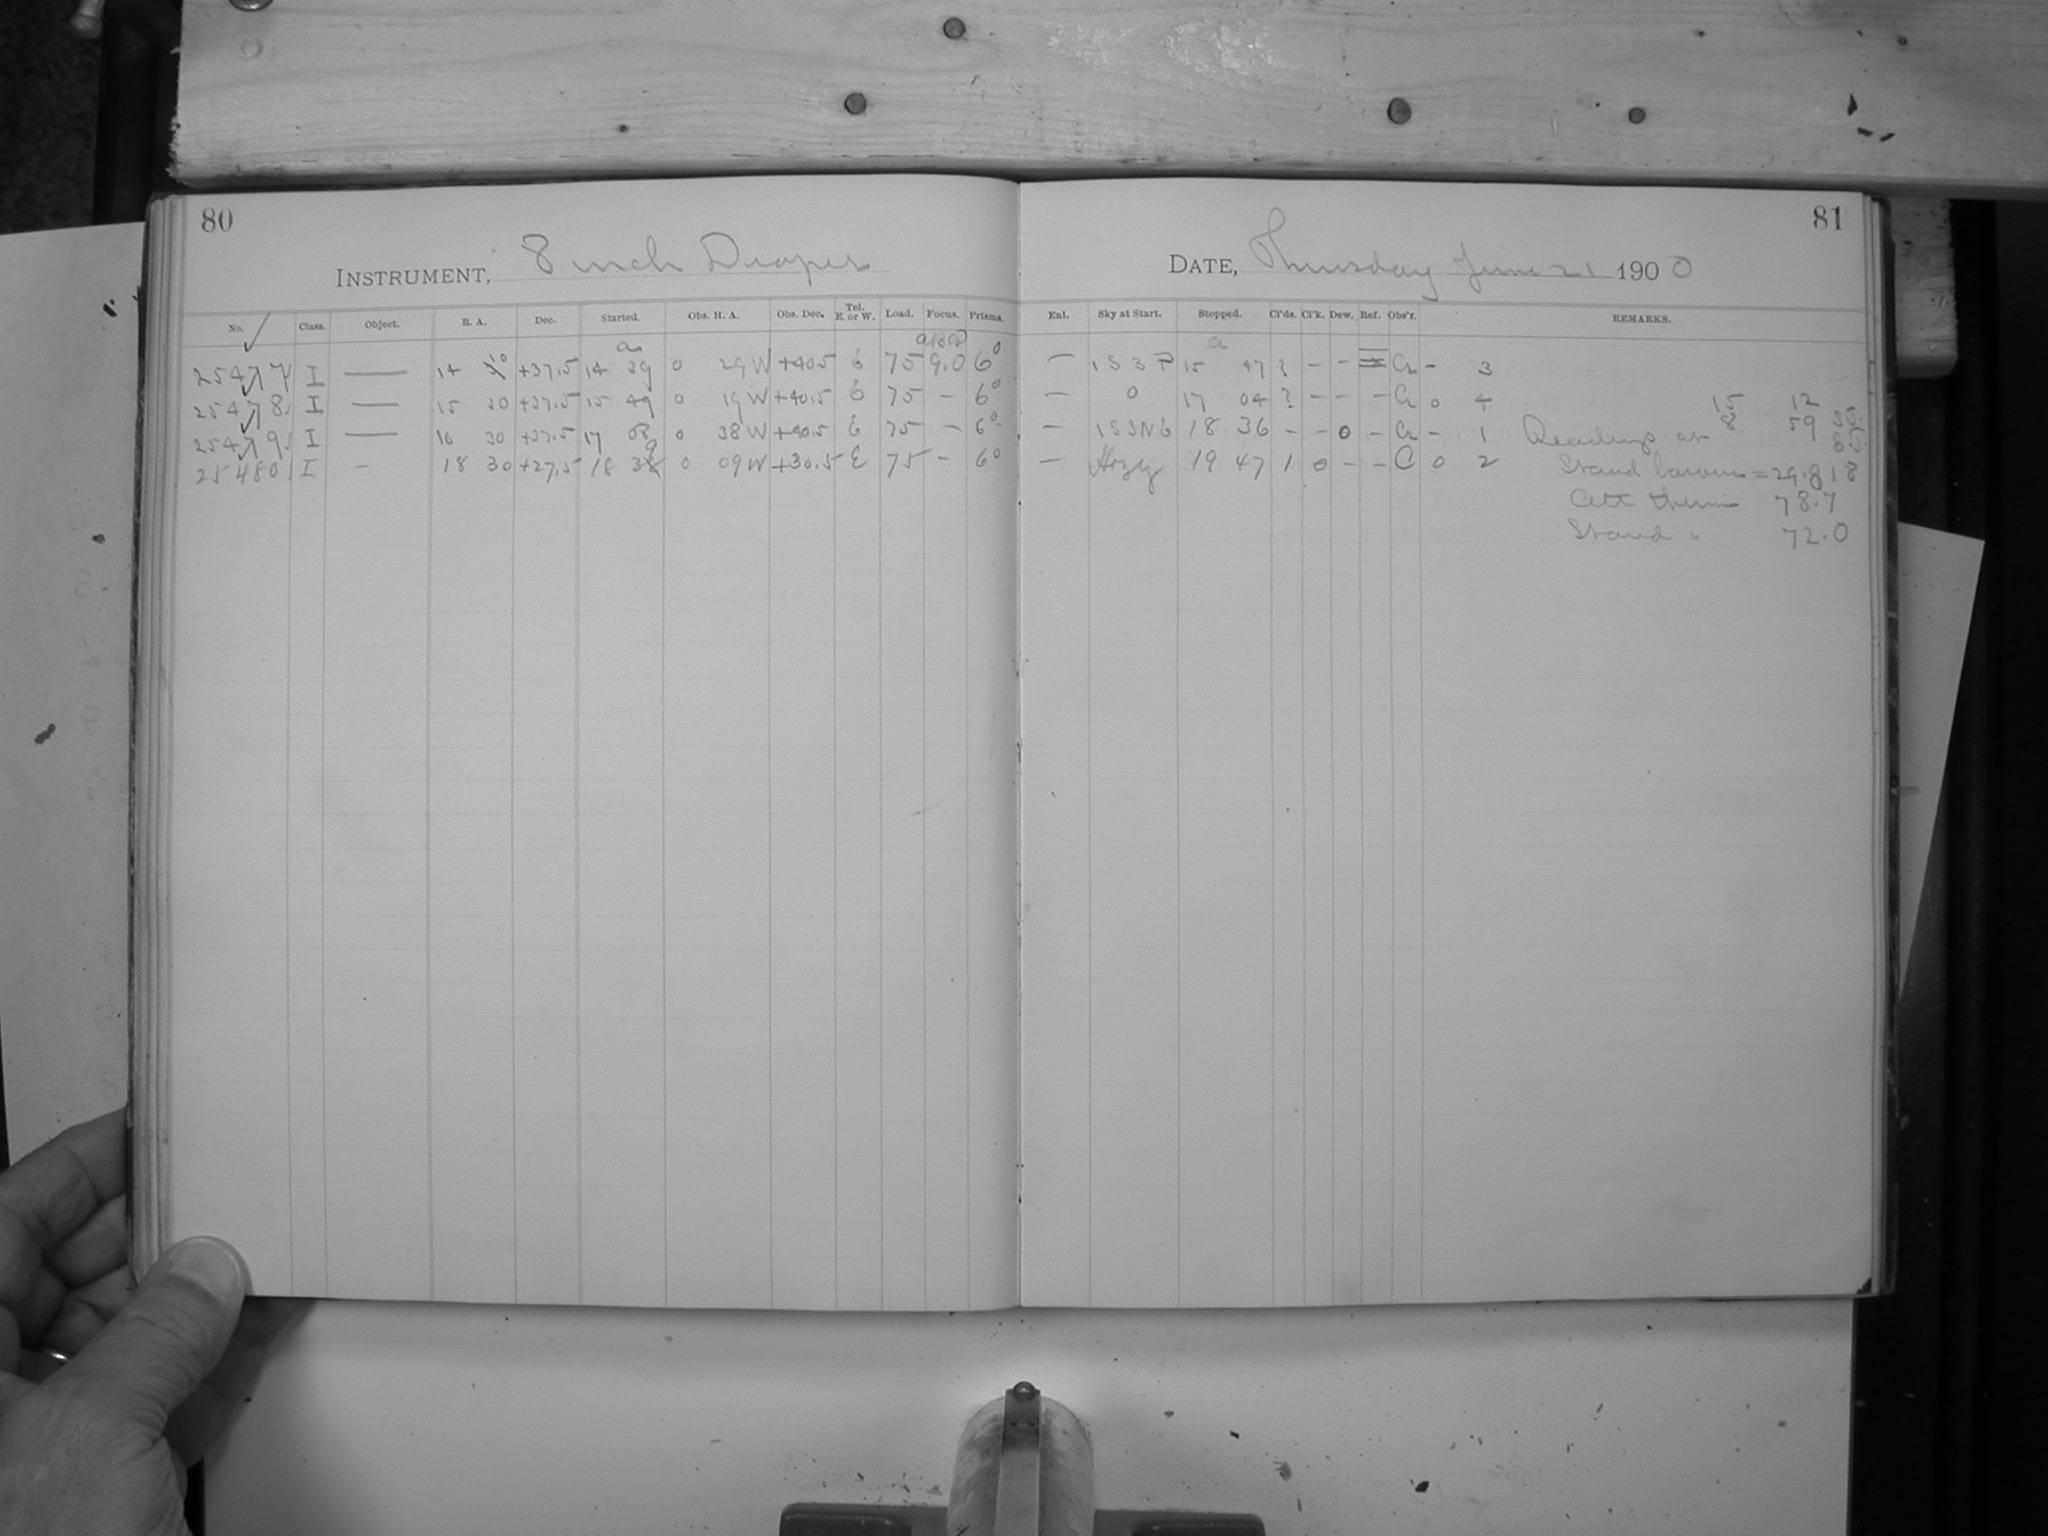 80
INSTRUMENT, 8 inch Draper
No. Class. Object. R. A. Dec. Started. Obs. H. A. Obs. Dec. Tel. E. or W. Load. Focus. Prisms.
25477 I — 14 10 +37.5 14 39 0 29 W +40.5 E 75 9.0 6°
25478 I — 15 30 +37.5 15 49 0 19 W +40.5 E 75 – 6°
25479 I — 16 30 +37.5 17 08 0 38 W +40.5 E 75 – 6°
25480 I – 18 30 +27.5 18 39 0 09 W +30.5 E 75 – 6°
81
DATE, Thursday June 21 1900
Enl. Sky at Start. Stopped. Cl'ds. Cl'k. Dew. Ref. Obs'r. REMARKS.
– 1S3P 15 47 ? – – – 3
– 0 17 04 ? – – – 0 4 15 12
– 1S3N6 18 36 – – 0 – – 1 Readings at 8 59
– Hazy 19 47 1 0 – – C 0 2 Stand barom = 29.818
Att therm 78.7
Stand " 72.0